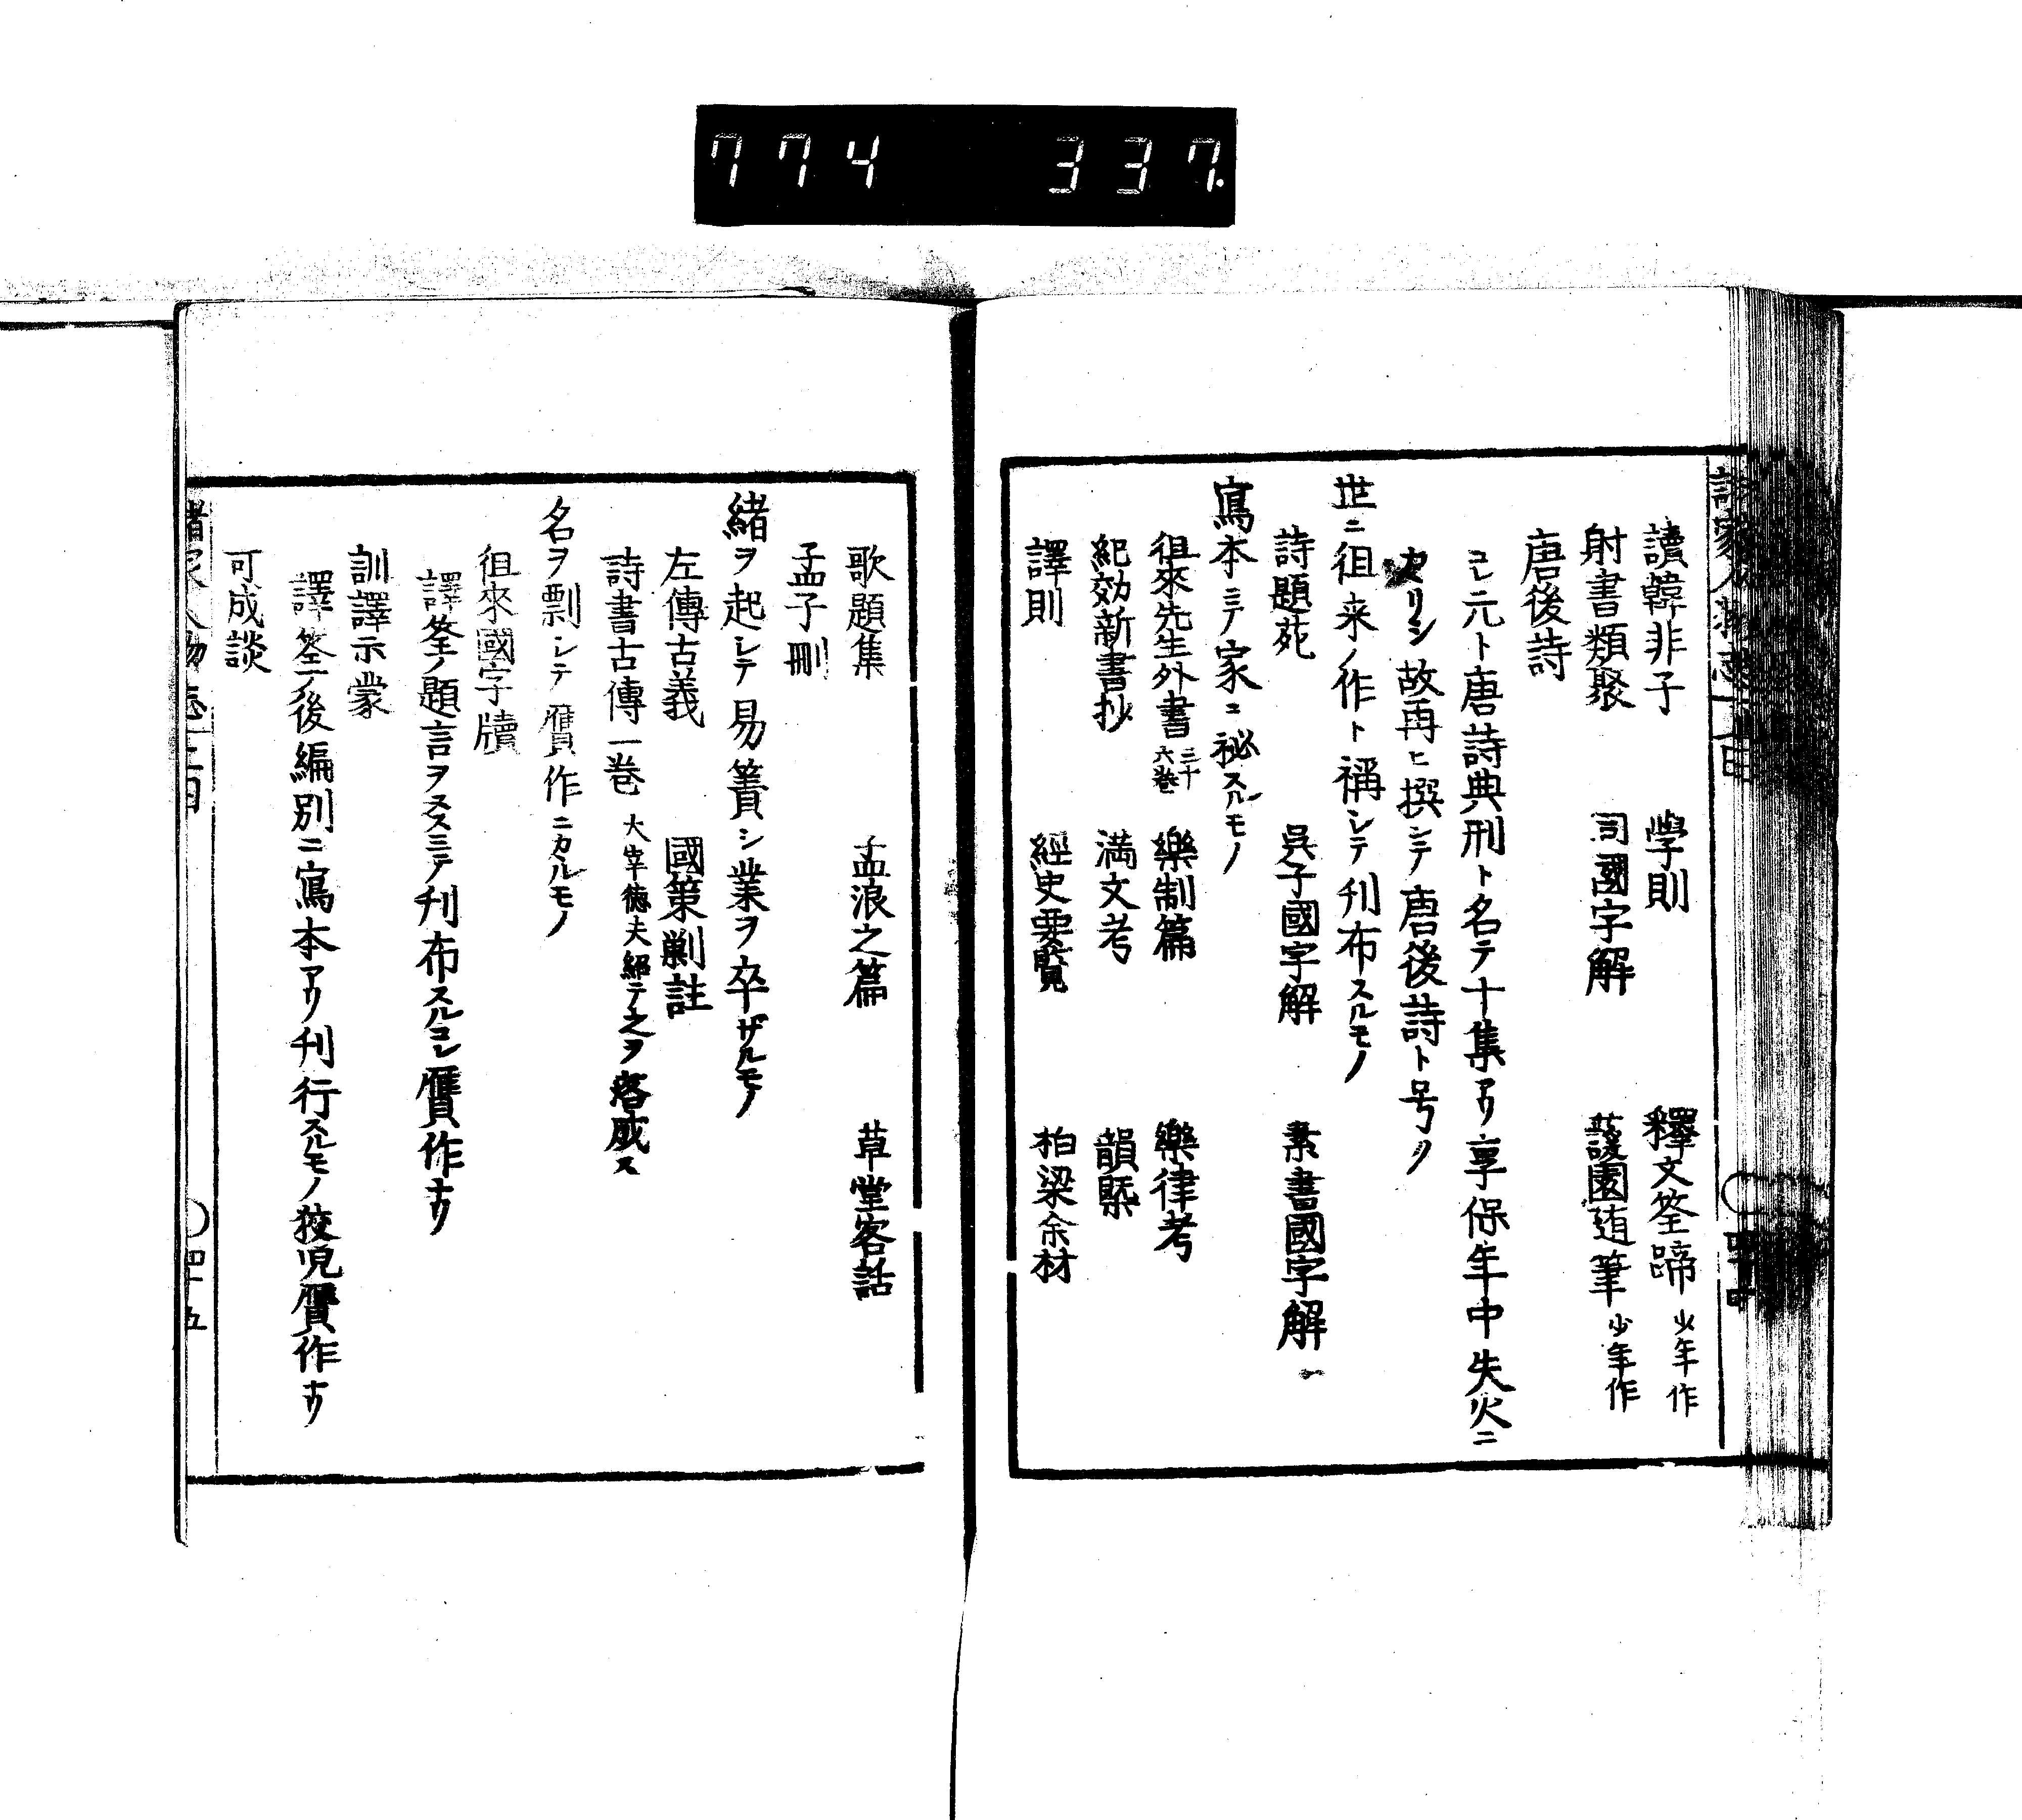 774 337.
讀韓非子 學則 釋文筌蹄 少年作
射書類聚 司國字解 蘐園随筆 少年作
唐後詩
コレ元ト唐詩典刑ト名テ十集アリ享保年中失火ニ
カヽリシ故再ヒ撰シテ唐後詩ト号ク
世ニ徂来ノ作ト稱シテ刊布スルモノ
詩題苑 吳子國字解 素書國字解
寫本ニテ家ニ祕スルモノ
徂來先生外書 三十六巻 樂制篇 樂律考
紀効新書抄 満文考 韻槩
譯則 經史要覽 柏梁余材
歌題集 孟浪之篇 草堂客話
孟子刪
緒ヲ起シテ易簀シ業ヲ卒ザルモノ
左傳古義 國策剿註
詩書古傳一巻 大宰徳夫紹テ之ヲ落成ス
名ヲ剽シテ贋作ニカルモノ
徂來國字牘
譯筌ノ題言ヲヌスミテ刊布スルコレ贋作ナリ
訓譯示蒙
譯筌ノ後編別ニ寫本アリ刊行スルモノ狡児贋作ナリ
可成談
四十五